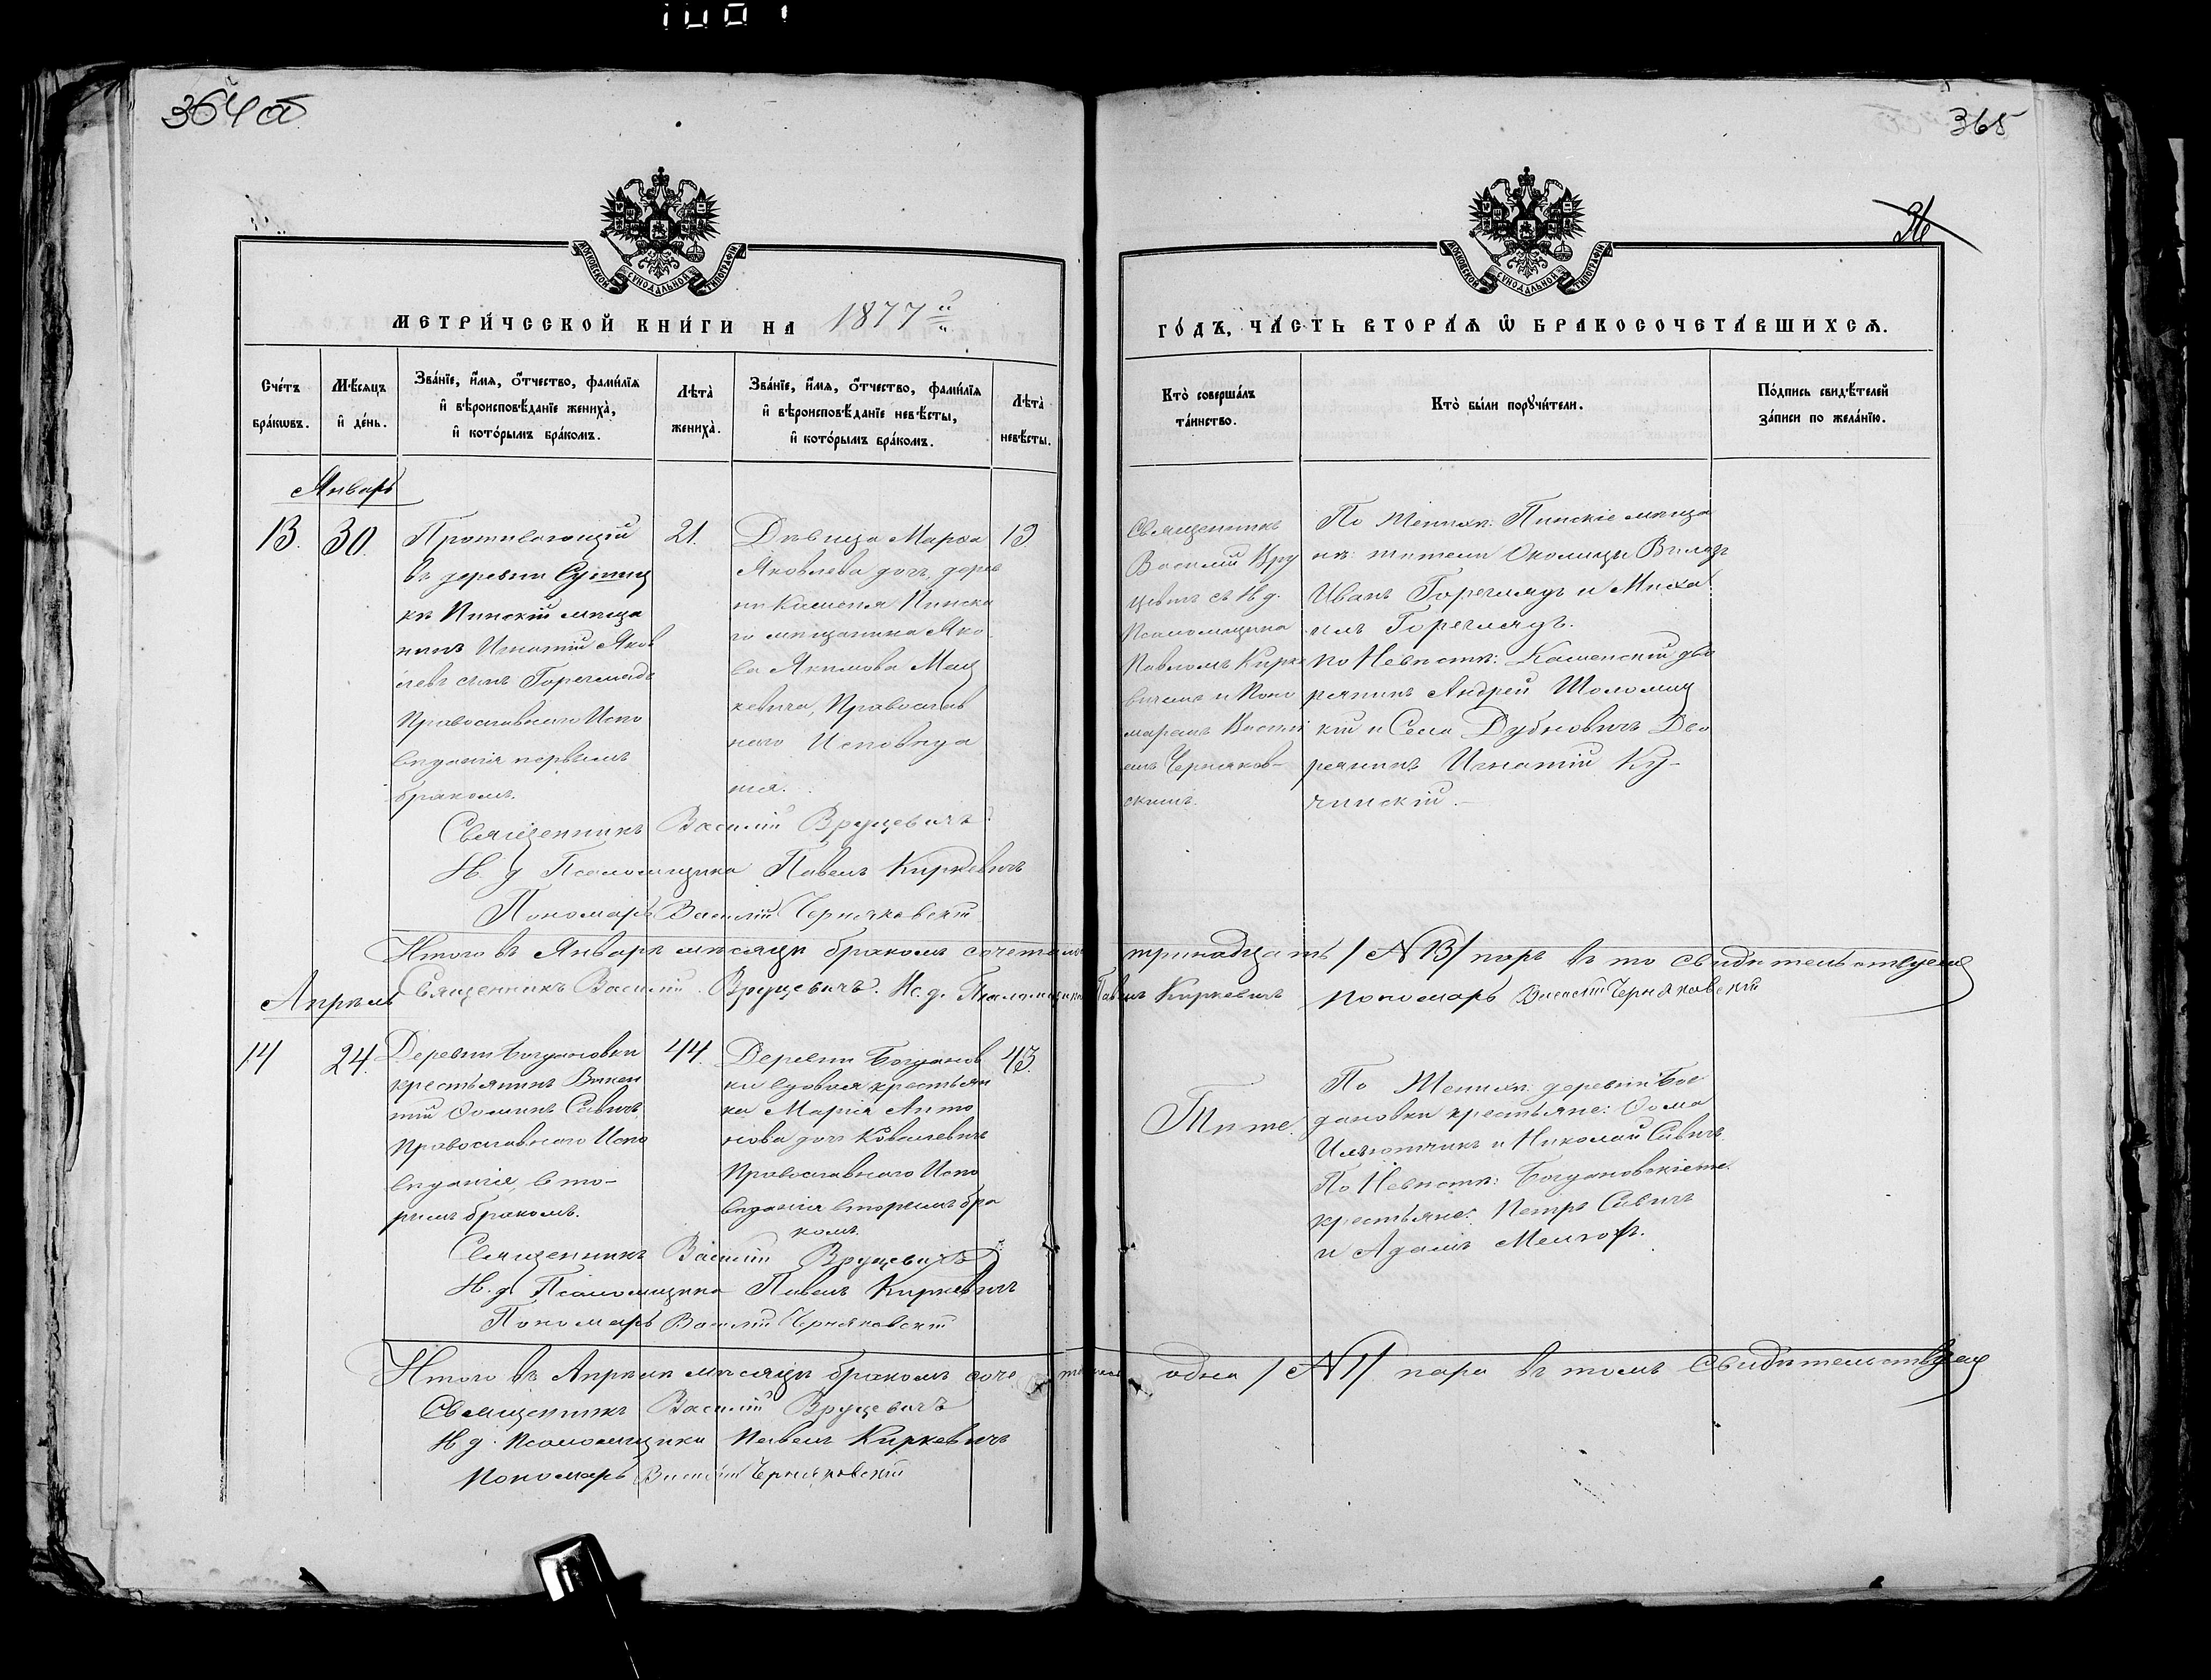 364 об
365
36
МОСКОВСКОЙ СѴНОДАЛЬНОЙ ТИПОГРАФІИ
МОСКОВСКОЙ СѴНОДАЛЬНОЙ ТИПОГРАФІИ
МЕТРИ́ЧЕСКОЙ КНИ́ГИ НА 1877й
ГО́ДЪ, ЧА́СТЬ ВТОРА́Ѧ Ѽ БРАКОСОЧЕТА́ВШИХСѦ.
Сче́тъ бра́кѡвъ.
Мѣ́сяцъ и҆ де́нь.
Зва́нїе, и҆́мѧ, ѻ҆́тчество, фами́лїѧ
и҆ вѣроисповѣ́данїе жениха̀,
и҆ кото́рымъ бра́комъ.
Лѣта̀ жениха̀.
Зва́нїе, и҆́мѧ, ѻ҆́тчество, фами́лїѧ
и҆ вѣроисповѣ́данїе невѣ́сты,
и҆ кото́рымъ бра́комъ.
Лѣта̀ невѣ́сты.
Кто̀ соверша́лъ
та́инство.
Кто̀ бы́ли порꙋчи́тели.
По́дпись свидѣ́телей
за́писи по жела́нїю.
Январь
13.
30.
Проживающій
въ деревни
кѣ Пинскій мѣща
нинъ Игнатій Яков
левъ сынъ Горегляд
Православнаго Испо
вѣданія первымъ
бракомъ.
21.
Дѣвица Марѳа
Яковлева дочь, дерев
ни Каменя Пинска
го мѣщанина Яко
ва Якимова Мац
кевича, Православ
наго Исповѣда
нія.
19
Священникъ
Василій Вру
цевичъ съ И д.
Псаломщика
Павломъ Кирке
вичемъ и Поно
маремъ Васил
емъ Черняков-
скимъ.
По Женихѣ: Пинскіе мѣща
не: жители Околицы
Иванъ Гореглядъ и Миха
илъ Гореглядъ.
по Невѣстѣ: Каменскій дво
рянинъ Андрей Шоломиц
кій и Села Дубновичъ Дво
рянинъ Игнатій Ку-
чинскій.
Священникъ Василій Вруцевичъ
И. д Псаломщика Павелъ Киркевичъ
Пономарь Василій Черняковскій
Итого въ Январѣ мѣсяцѣ бракомъ сочетались тринадцать /N 13/ паръ въ то свидѣтельствуемъ
Священникъ Василій Вруцевичъ. Ис. д. Псаломщика Павелъ Киркевичъ Пономарь Василій Черняковскій
Апрѣль
14
24.
Деревни Богдановки
крестьянинъ Викен
тій Ѳоминъ Савичъ,
Православнаго Испо
вѣданія, вто-
рымъ бракомъ.
44.
Деревни Богданов
ки вдовая крестьян
ка Марія Анто
нова дочь Ковалевичъ
Православнаго Испо
вѣданія вторымъ бра
комъ.
43
Тѣ же.
По Женихѣ: деревни Бог
дановки крестьяне: Ѳома
Илькотчикъ и Николай Савичъ.
По Невѣстѣ: Богдановскіе же
крестьяне: Петръ Савичъ
и Адамъ
Священникъ Василій Вруцевичъ
И. д. Псаломщика Павелъ Киркевичъ
Пономарь Василій Черняковскій
Итого въ Апрѣлѣ мѣсяцѣ бракомъ соче талась одна /N 1/ пара въ томъ свидѣтельствуемъ
Священникъ Василій Вруцевичъ
И д. Псаломщика Павелъ Киркевичъ
Пономарь Василій Черняковскій